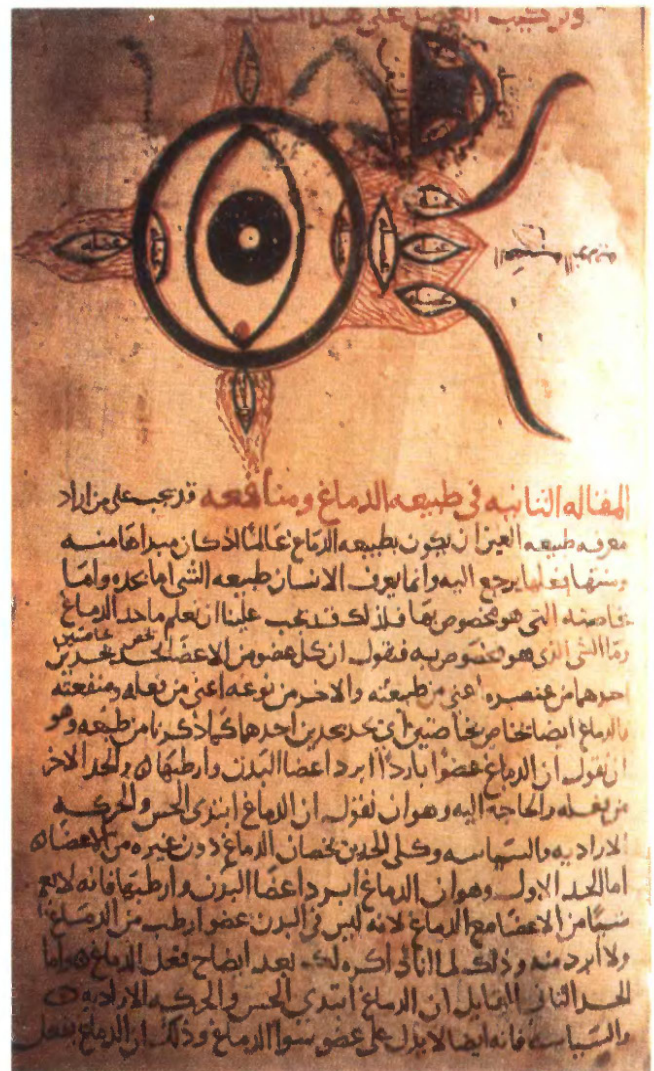 وتركيب العضل على هذا المثال
عضله
عضله
عضله
عضله
عضله
عضله
المقاله الثانيه في طبيعه الدماغ ومنافعه قد يجب على من اراد
معرفه طبيعه العين ان يكون بطبيعه الدماغ عالمًا اذ كان مبداها منه
ومنتهاها بفعلها يرجع اليه وانما يعرف الانسان طبيعه الشي اما بحده واما
بخاصته التي هو مخصوص بها فلذلك قد يجب علينا ان نعلم ما حد الدماغ
وما الشي الذي هو مخصوص به فنقول ان كل عضو من الاعضا يحد بحدين
احدهما من عنصره اعني من طبيعته والاخر من نوعه اعني من فعله ومنفعته
فالدماغ ايضا بخاصتين اي يحد بحدين احدهما كما ذكرنا من طبيعه وهو
ان نقول ان الدماغ عضوًا باردًا ابرد اعضا البدن وارطبها والحد الاخر
من فعله والحاجه اليه وهو ان نقول ان الدماغ ابتدى الحس والحركه
الاراديه والسياسه وكلى الحدين يخصان الدماغ دون غيره من الاعضا
اما الحد الاول وهو ان الدماغ ابرد اعضا البدن وارطبها فانه لا يقع
شيا من الاعضا مع الدماغ لانه ليس في البدن عضو ارطب من الدماغ
ولا ابرد منه وذلك لما انا ذاكره لك بعد ايضاح فعل الدماغ واما
الحد الثاني القايل ان الدماغ ابتدى الحس والحركه الاراديه
والسياسه فانه ايضا لا يدل على عضو سوا الدماغ وذلك ان الدماغ يفعل